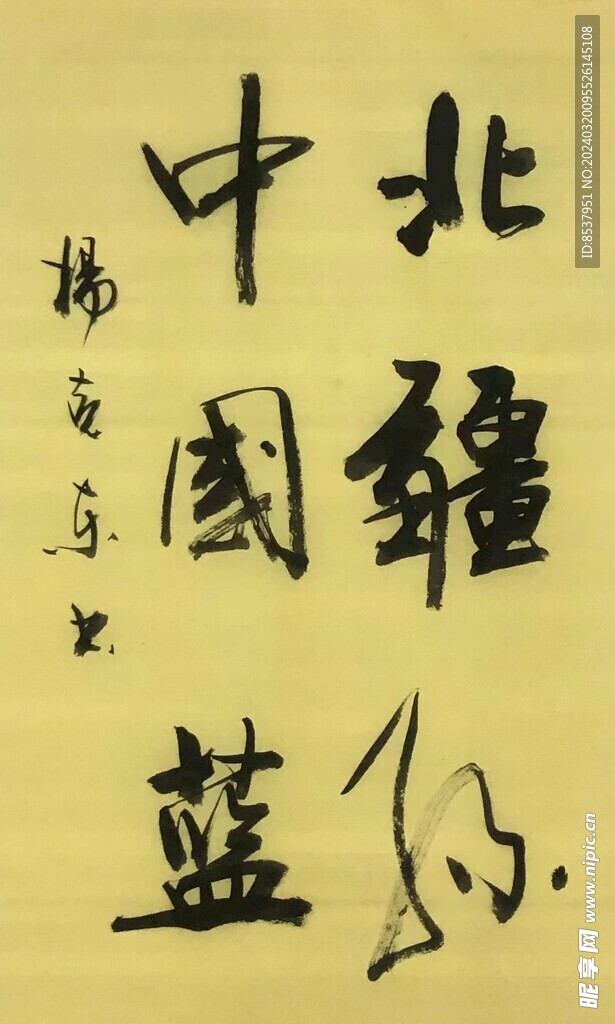 北疆綠
中國藍
楊克东书
ID:8537951 NO:20240320095526145108
昵享网 www.nipic.cn